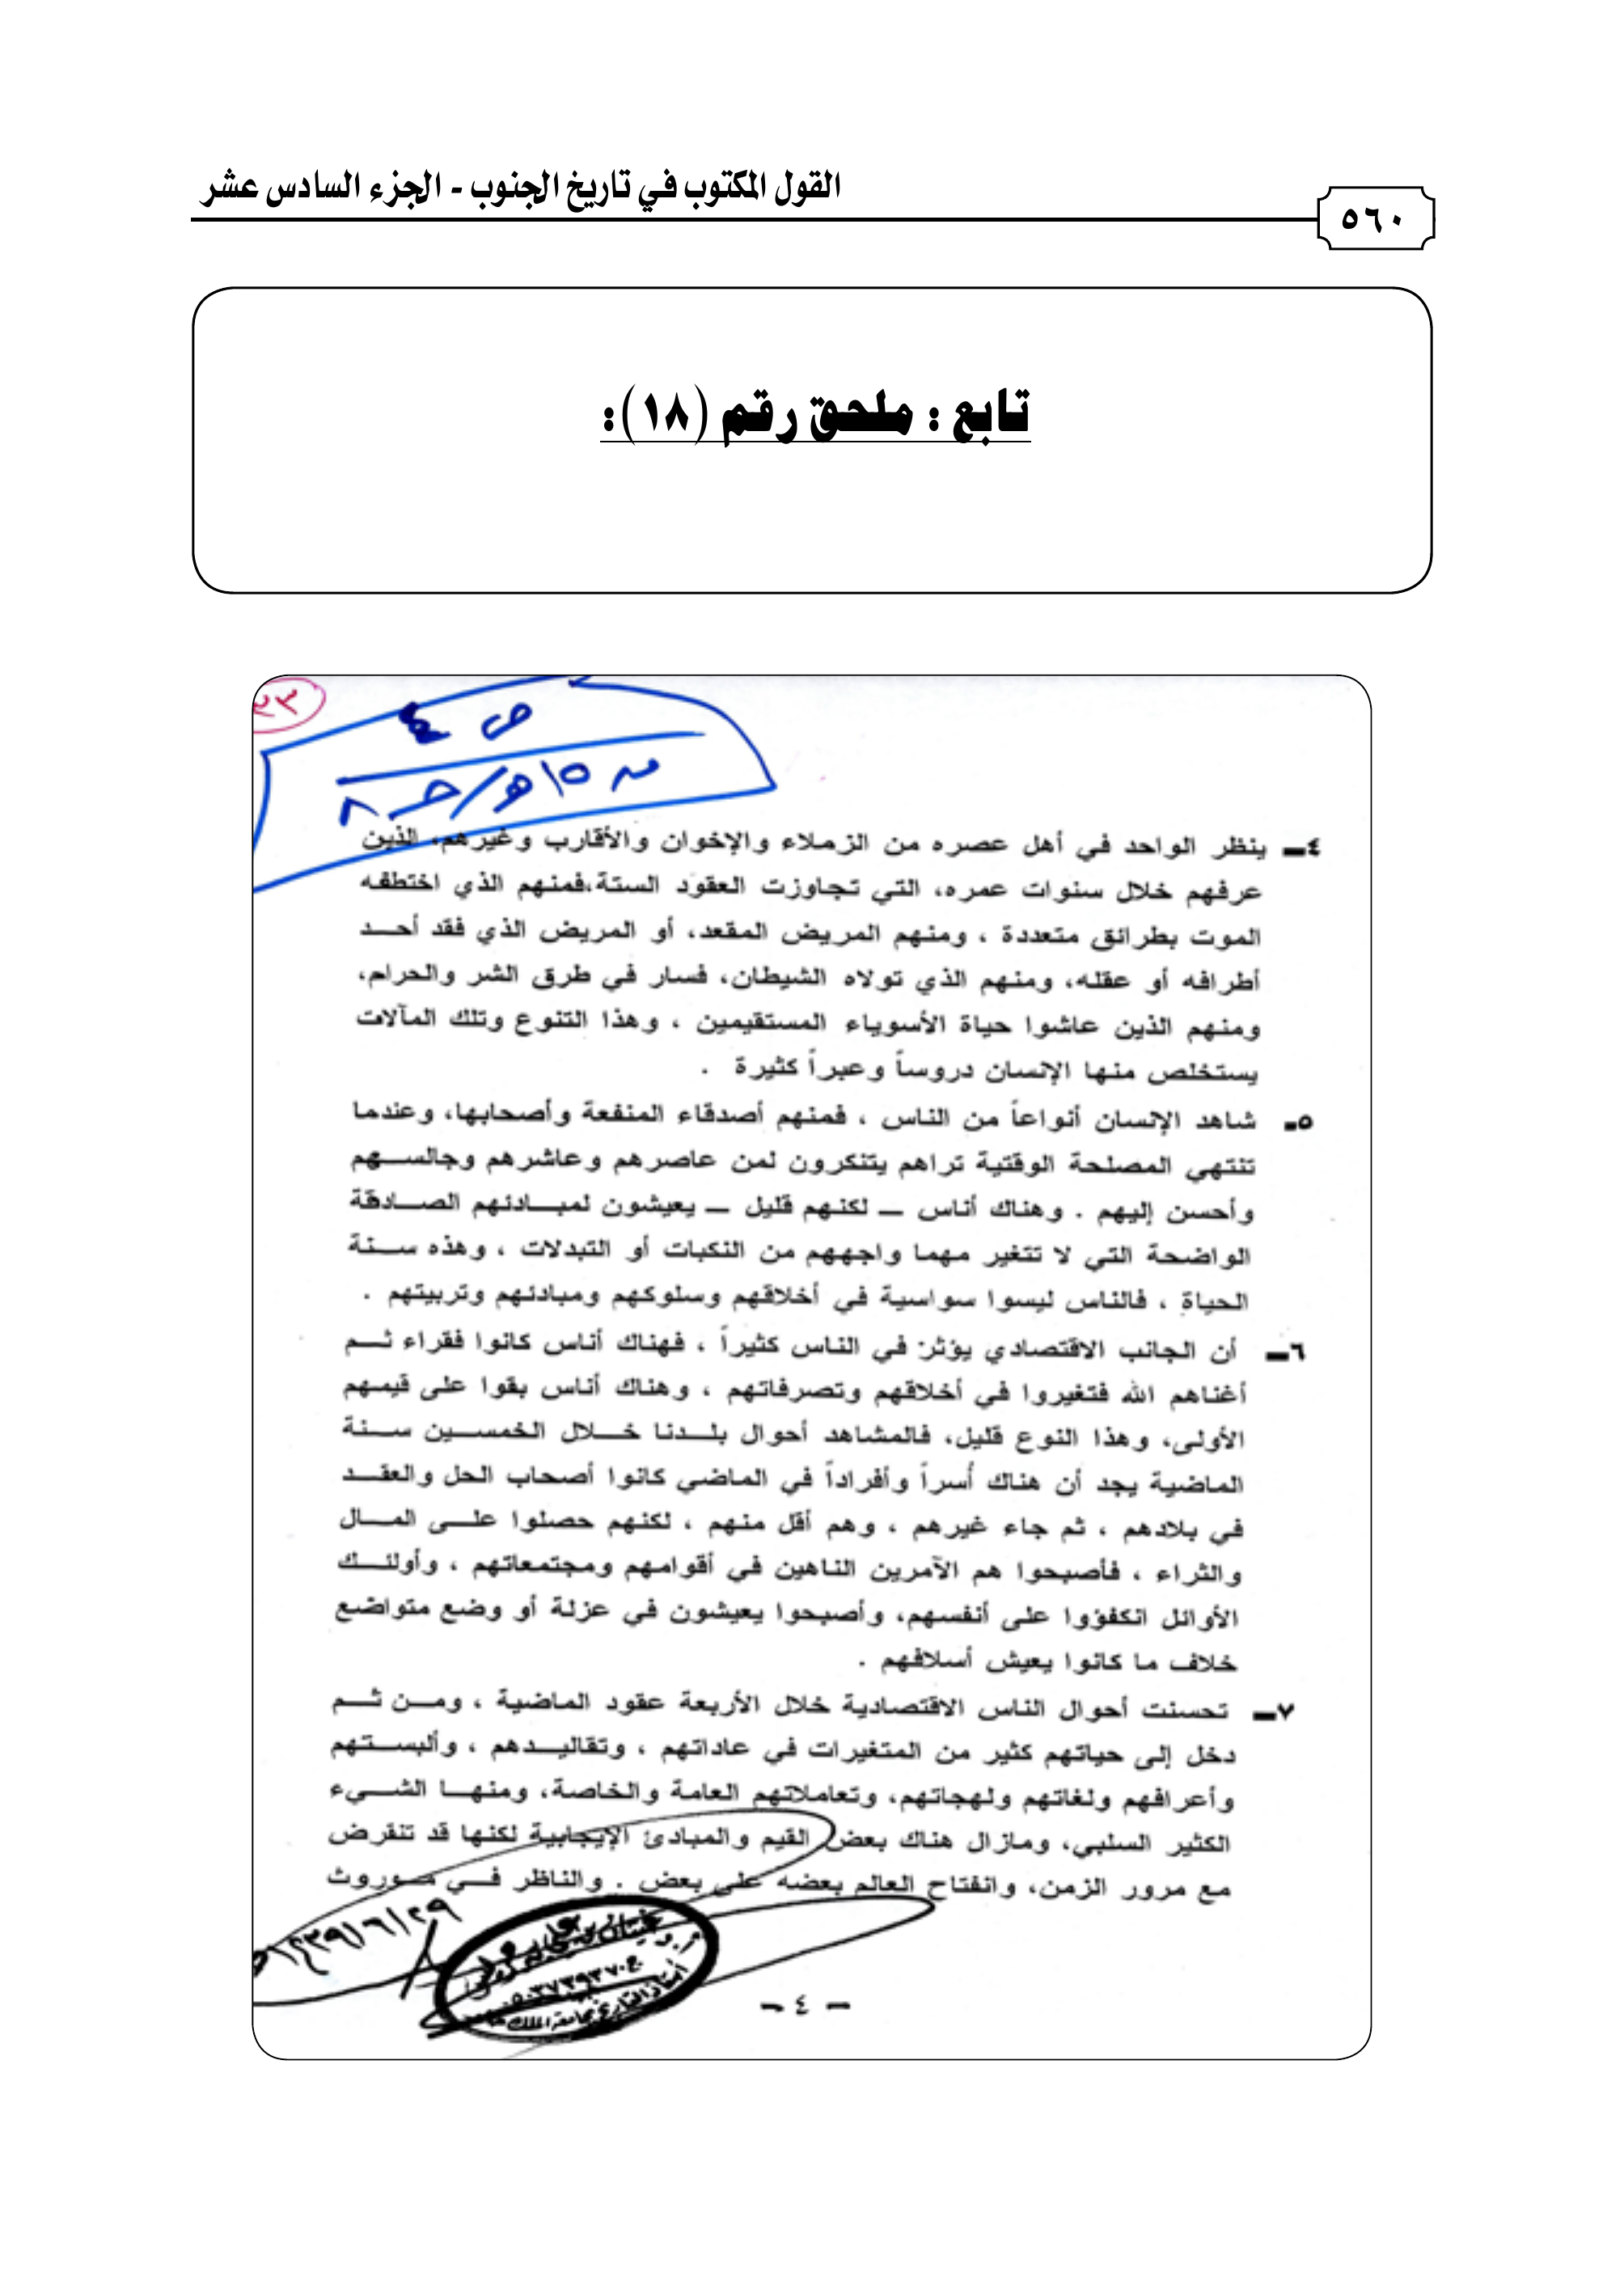 القول المكتوب في تاريخ الجنوب - الجزء السادس عشر
٥٦٠
تابع : ملحق رقم (١٨):
٢٣
ص ٤
من ١٥ هـ/ حـ ٨
٤ـ ينظر الواحد في أهل عصره من الزملاء والإخوان والأقارب وغيرهم، الذين
عرفهم خلال سنوات عمره، التي تجاوزت العقود الستة،فمنهم الذي اختطفه
الموت بطرائق متعددة ، ومنهم المريض المقعد، أو المريض الذي فقد أحــد
أطرافه أو عقله، ومنهم الذي تولاه الشيطان، فسار في طرق الشر والحرام،
ومنهم الذين عاشوا حياة الأسوياء المستقيمين ، وهذا التنوع وتلك المآلات
يستخلص منها الإنسان دروساً وعبراً كثيرة .
٥ـ شاهد الإنسان أنواعاً من الناس ، فمنهم أصدقاء المنفعة وأصحابها، وعندما
تنتهي المصلحة الوقتية تراهم يتنكرون لمن عاصرهم وعاشرهم وجالســهم
وأحسن إليهم . وهناك أناس ــ لكنهم قليل ــ يعيشون لمبــادئهم الصــادقة
الواضحة التي لا تتغير مهما واجههم من النكبات أو التبدلات ، وهذه ســنة
الحياة ، فالناس ليسوا سواسية في أخلاقهم وسلوكهم ومبادئهم وتربيتهم .
٦ـ أن الجانب الاقتصادي يؤثر في الناس كثيراً ، فهناك أناس كانوا فقراء ثــم
أغناهم الله فتغيروا في أخلاقهم وتصرفاتهم ، وهناك أناس بقوا على قيمـهم
الأولى، وهذا النوع قليل، فالمشاهد أحوال بلــدنا خــلال الخمســين ســنة
الماضية يجد أن هناك أسراً وأفراداً في الماضي كانوا أصحاب الحل والعقــد
في بلادهم ، ثم جاء غيرهم ، وهم أقل منهم ، لكنهم حصلوا علــى المــال
والثراء ، فأصبحوا هم الآمرين الناهين في أقوامهم ومجتمعاتهم ، وأولئــك
الأوائل انكفؤوا على أنفسهم، وأصبحوا يعيشون في عزلة أو وضع متواضع
خلاف ما كانوا يعيش أسلافهم .
٧ـ تحسنت أحوال الناس الاقتصادية خلال الأربعة عقود الماضية ، ومــن ثــم
دخل إلى حياتهم كثير من المتغيرات في عاداتهم ، وتقاليــدهم ، وألبســتهم
وأعرافهم ولغاتهم ولهجاتهم، وتعاملاتهم العامة والخاصة، ومنهــا الشــيء
الكثير السلبي، ومازال هناك بعض القيم والمبادئ الإيجابية لكنها قد تنقرض
مع مرور الزمن، وانفتاح العالم بعضه على بعض . والناظر فــي مــوروث
١٤٣٩/٦/٢٩هـ
أستاذ التاريخ بجامعة الملك
- ٤ -